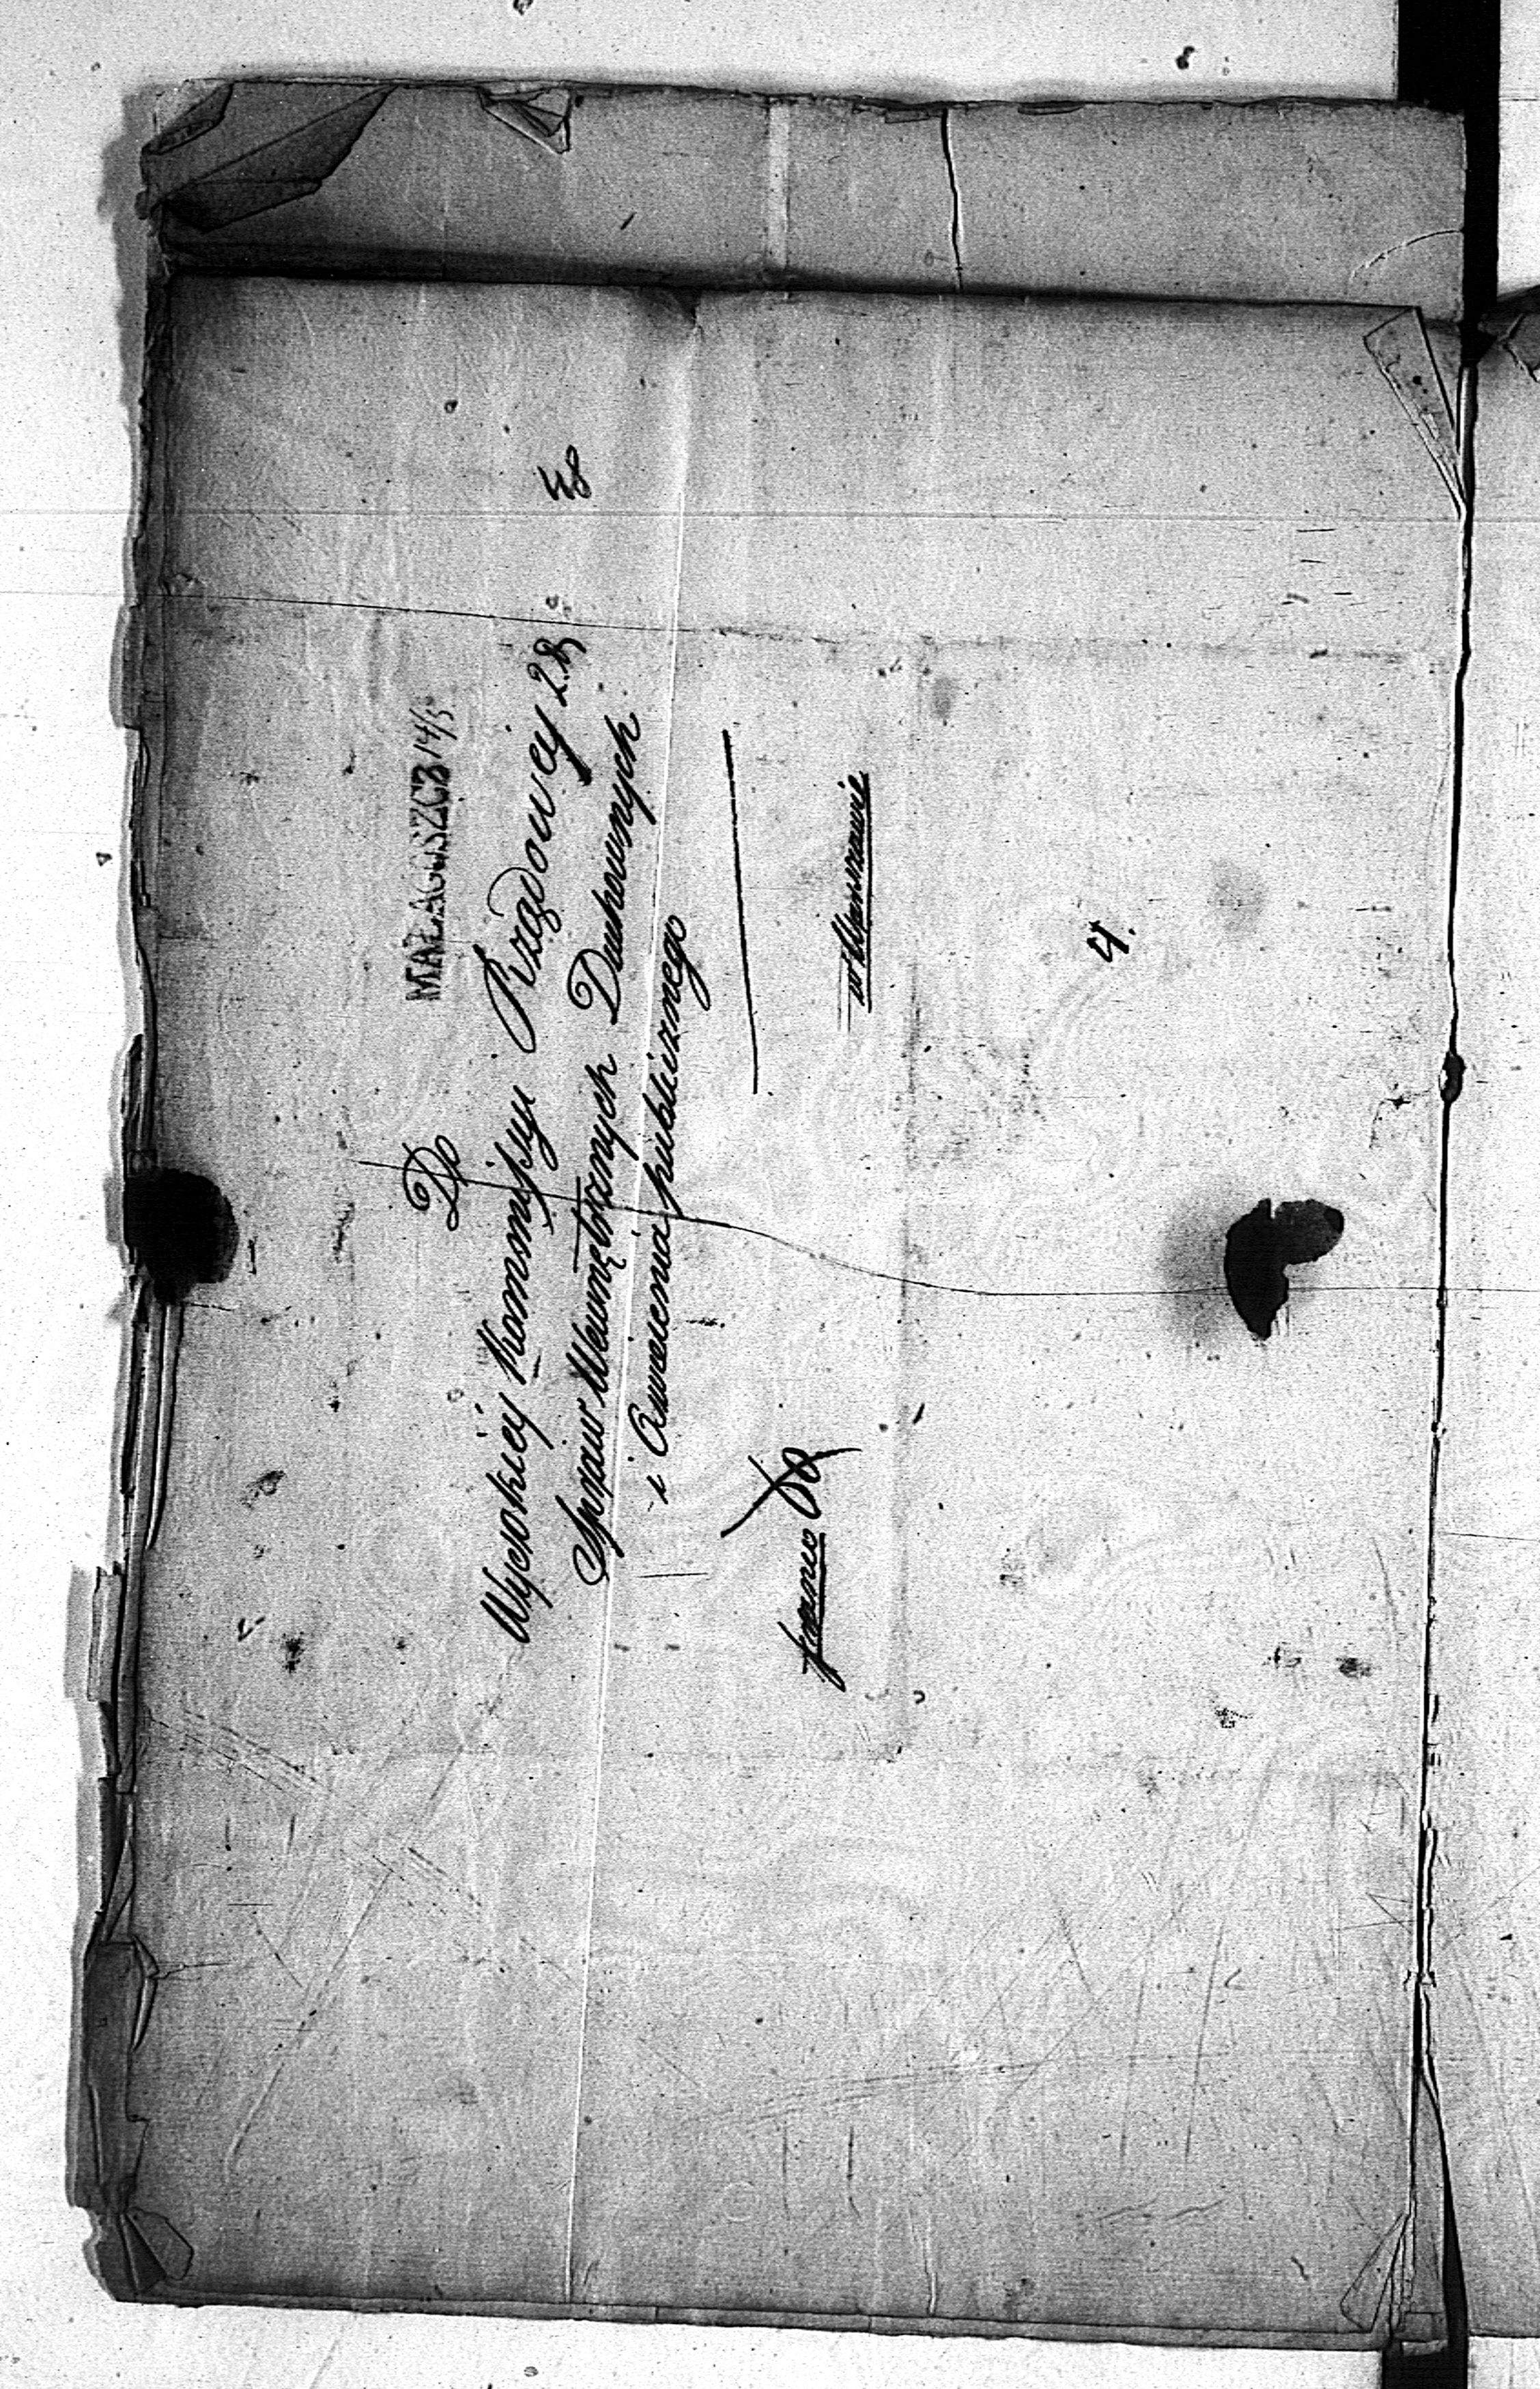 48
MAŁAGOSZCZ 14/5
Do
Wysokiey Kommissyi Rządowey
Spraw Wewnętrznych Duchownych
i Oświecenia publicznego
franco
w Warszawie
4.